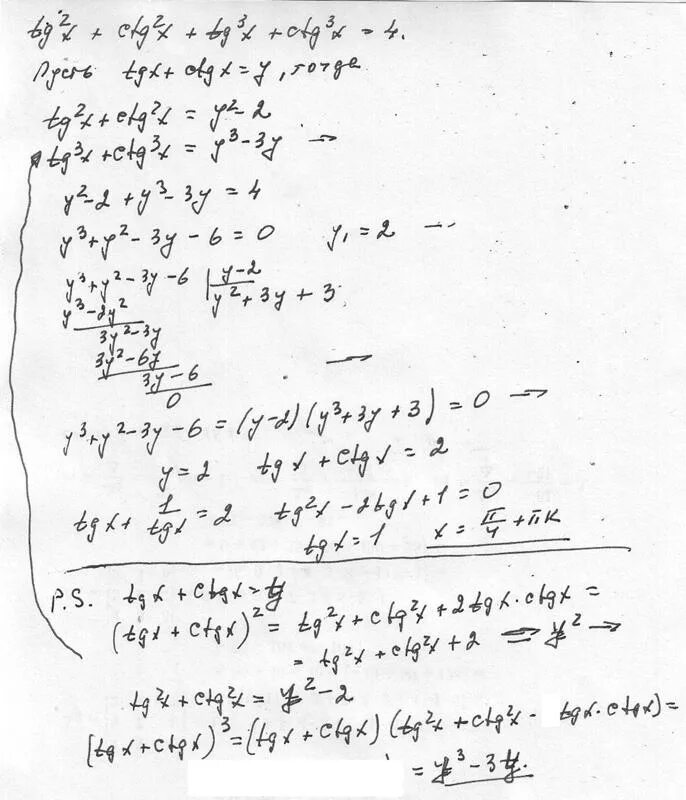 tg²x + ctg²x + tg³x + ctg³x = 4.
Пусть tgx + ctgx = y, тогда
tg²x + ctg²x = y² - 2
tg³x + ctg³x = y³ - 3y →
y² - 2 + y³ - 3y = 4
y³ + y² - 3y - 6 = 0 y₁ = 2 →
y³ + y² - 3y - 6 | y - 2
y³ - 2y² y² + 3y + 3
3y² - 3y
3y² - 6y
3y - 6 →
0
y³ + y² - 3y - 6 = (y - 2)(y³ + 3y + 3) = 0 →
y = 2 tgx + ctgx = 2
tgx + 1/tgx = 2 tg²x - 2tgx + 1 = 0
tgx = 1 x = π/4 + πk
P.S. tgx + ctgx = y
(tgx + ctgx)² = tg²x + ctg²x + 2tgx·ctgx =
= tg²x + ctg²x + 2 = y² →
tg²x + ctg²x = y² - 2
(tgx + ctgx)³ = (tgx + ctgx)(tg²x + ctg²x - tgx·ctgx) =
= y³ - 3y.